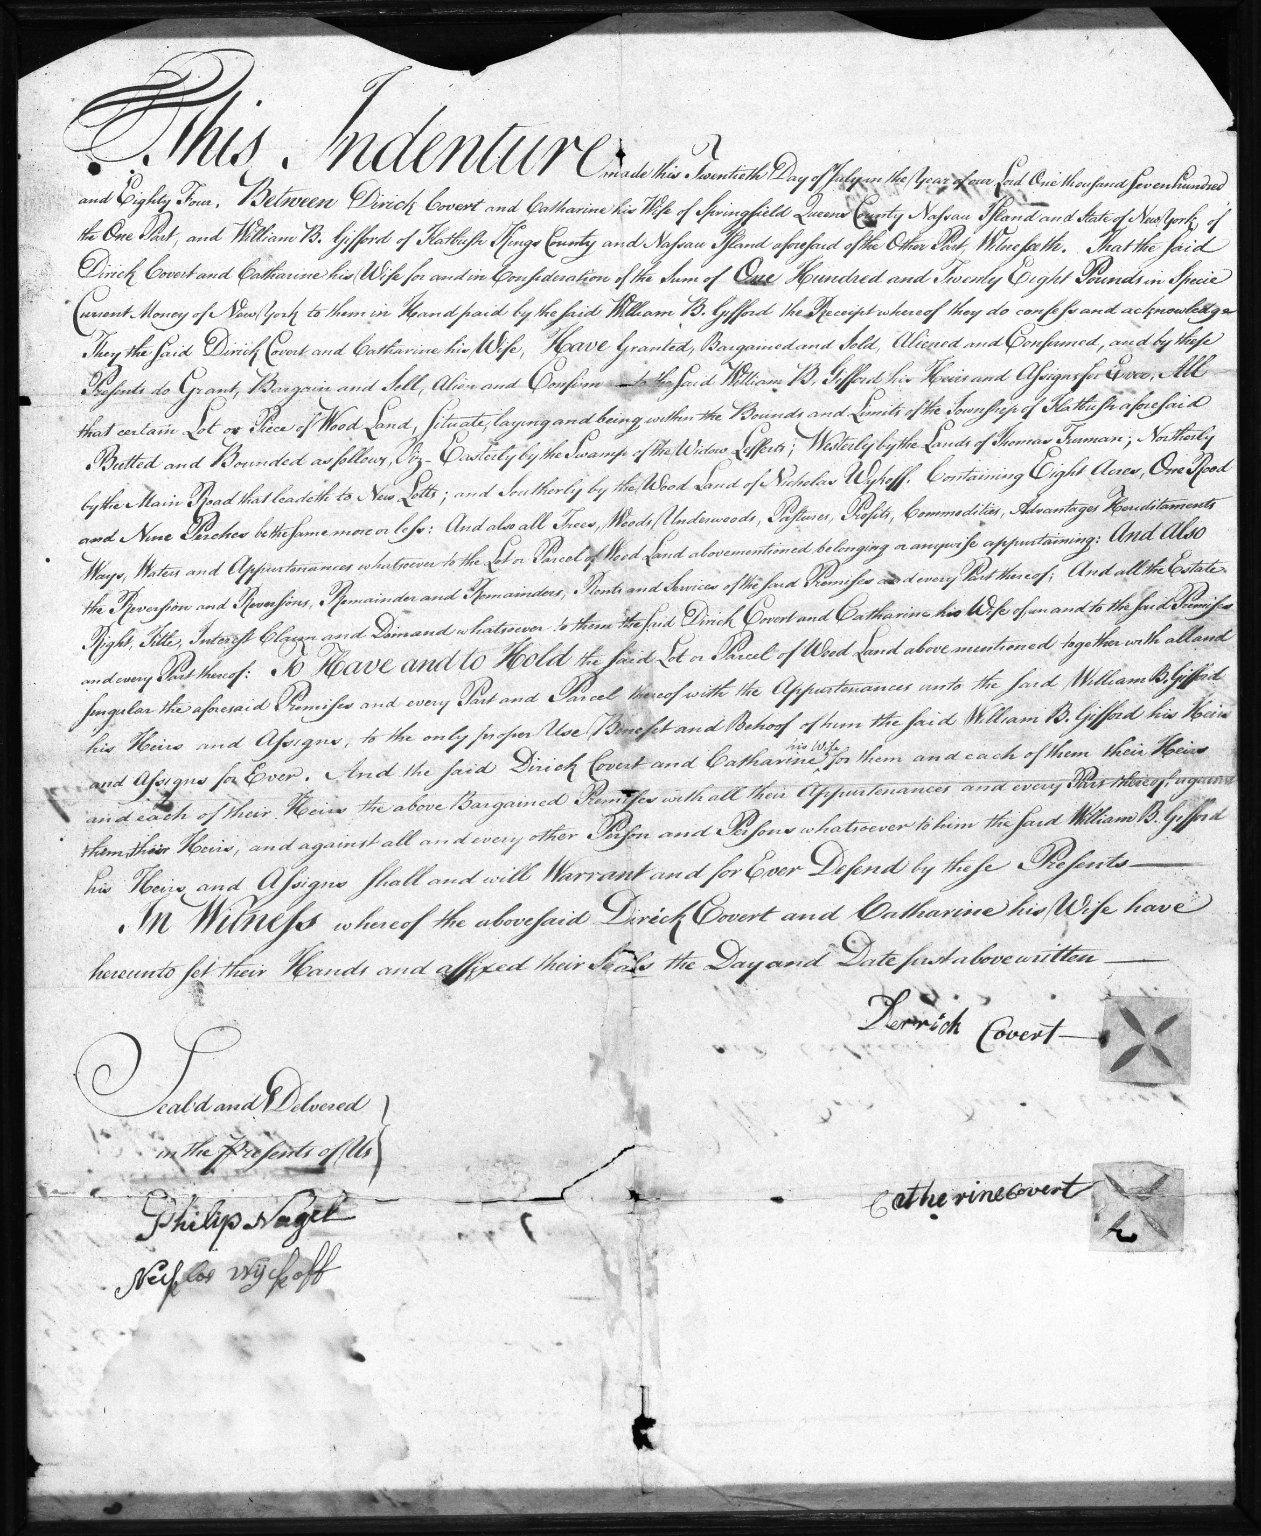 This Indenture made this Twentieth Day of July in the Year of our Lord One thousand Seven hundred
and Eighty Four. Between Dirick Covert and Catharine his Wife of Springfield Queens County Nassau Island and State of New York, of
the One Part, and William B. Gifford of Flatbush Kings County and Nassau Island aforesaid of the Other Part, Witnesseth. That the said
Dirick Covert and Catharine his Wife for and in Consideration of the Sum of One Hundred and Twenty Eight Pounds in Specie
Current Money of New York to them in Hand paid by the said William B. Gifford the Receipt whereof they do confess and acknowledge
They the said Dirick Covert and Catharine his Wife, Have Granted, Bargained and Sold, Aliened and Confirmed, and by these
Presents do Grant, Bargain and Sell, Alien and Confirm to the said William B. Gifford his Heirs and Assigns for Ever, All
that certain Lot or Piece of Wood Land, Situate, laying and being within the Bounds and Limits of the Township of Flatbush aforesaid
Butted and Bounded as follows, Viz- Easterly by the Swamp of the Widow Lefferts; Westerly by the Lands of Thomas Truman; Northerly
by the Main Road that leadeth to New Lotts; and Southerly by the Wood Land of Nicholas Wykoff. Containing Eight Acres, One Rood
and Nine Perches be the same more or less: And also all Trees, Woods, Underwoods, Pastures, Profits, Commodities, Advantages Heriditaments
Ways, Waters and Appurtenances whatsoever to the Lot or Parcel of Wood Land abovementioned belonging or anywise appurtaining: And Also
the Reversion and Reversions, Remainder and Remainders, Rents and Services of the said Premises and every Part thereof; And all the Estate
Right, Title, Interest Claim and Demand whatsoever to them the said Dirick Covert and Catharine his Wife of in and to the said Premises
and every Part thereof: To Have and to Hold the said Lot or Parcel of Wood Land above mentioned together with all and
singular the aforesaid Premises and every Part and Parcel thereof with the Appurtenances unto the said William B. Gifford
his Heirs and Assigns, to the only proper Use Benefit and Behoof of him the said William B. Gifford his Heirs
and Assigns for Ever. And the said Dirick Covert and Catharine his Wife for them and each of them their Heirs
and each of their Heirs the above Bargained Premises with all their Appurtenances and every Part thereof, against
them, their Heirs, and against all and every other Person and Persons whatsoever to him the said William B. Gifford
his Heirs and Assigns shall and will Warrant and for Ever Defend by these Presents
In Witness whereof the abovesaid Dirick Covert and Catharine his Wife have
hereunto set their Hands and affixed their Seals the Day and Date first above written
Derrick Covert
Seal'd and Delvered
in the Presents of Us
Catherine Covert
Philip Nagel
Wyckoff